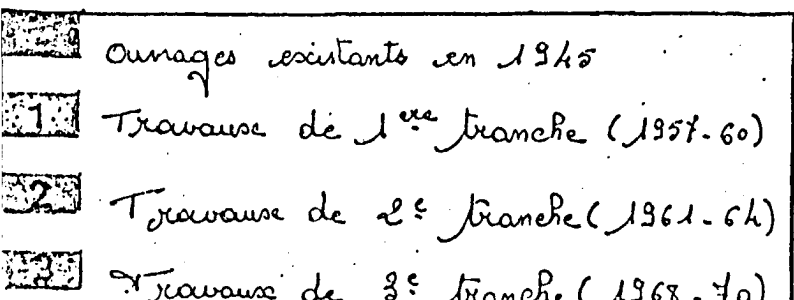 Ouvrages existants en 1945
1 Travaux de 1ere tranche (1957-60)
2 Travaux de 2e tranche (1961-64)
3 Travaux de 3e tranche (1968-70)